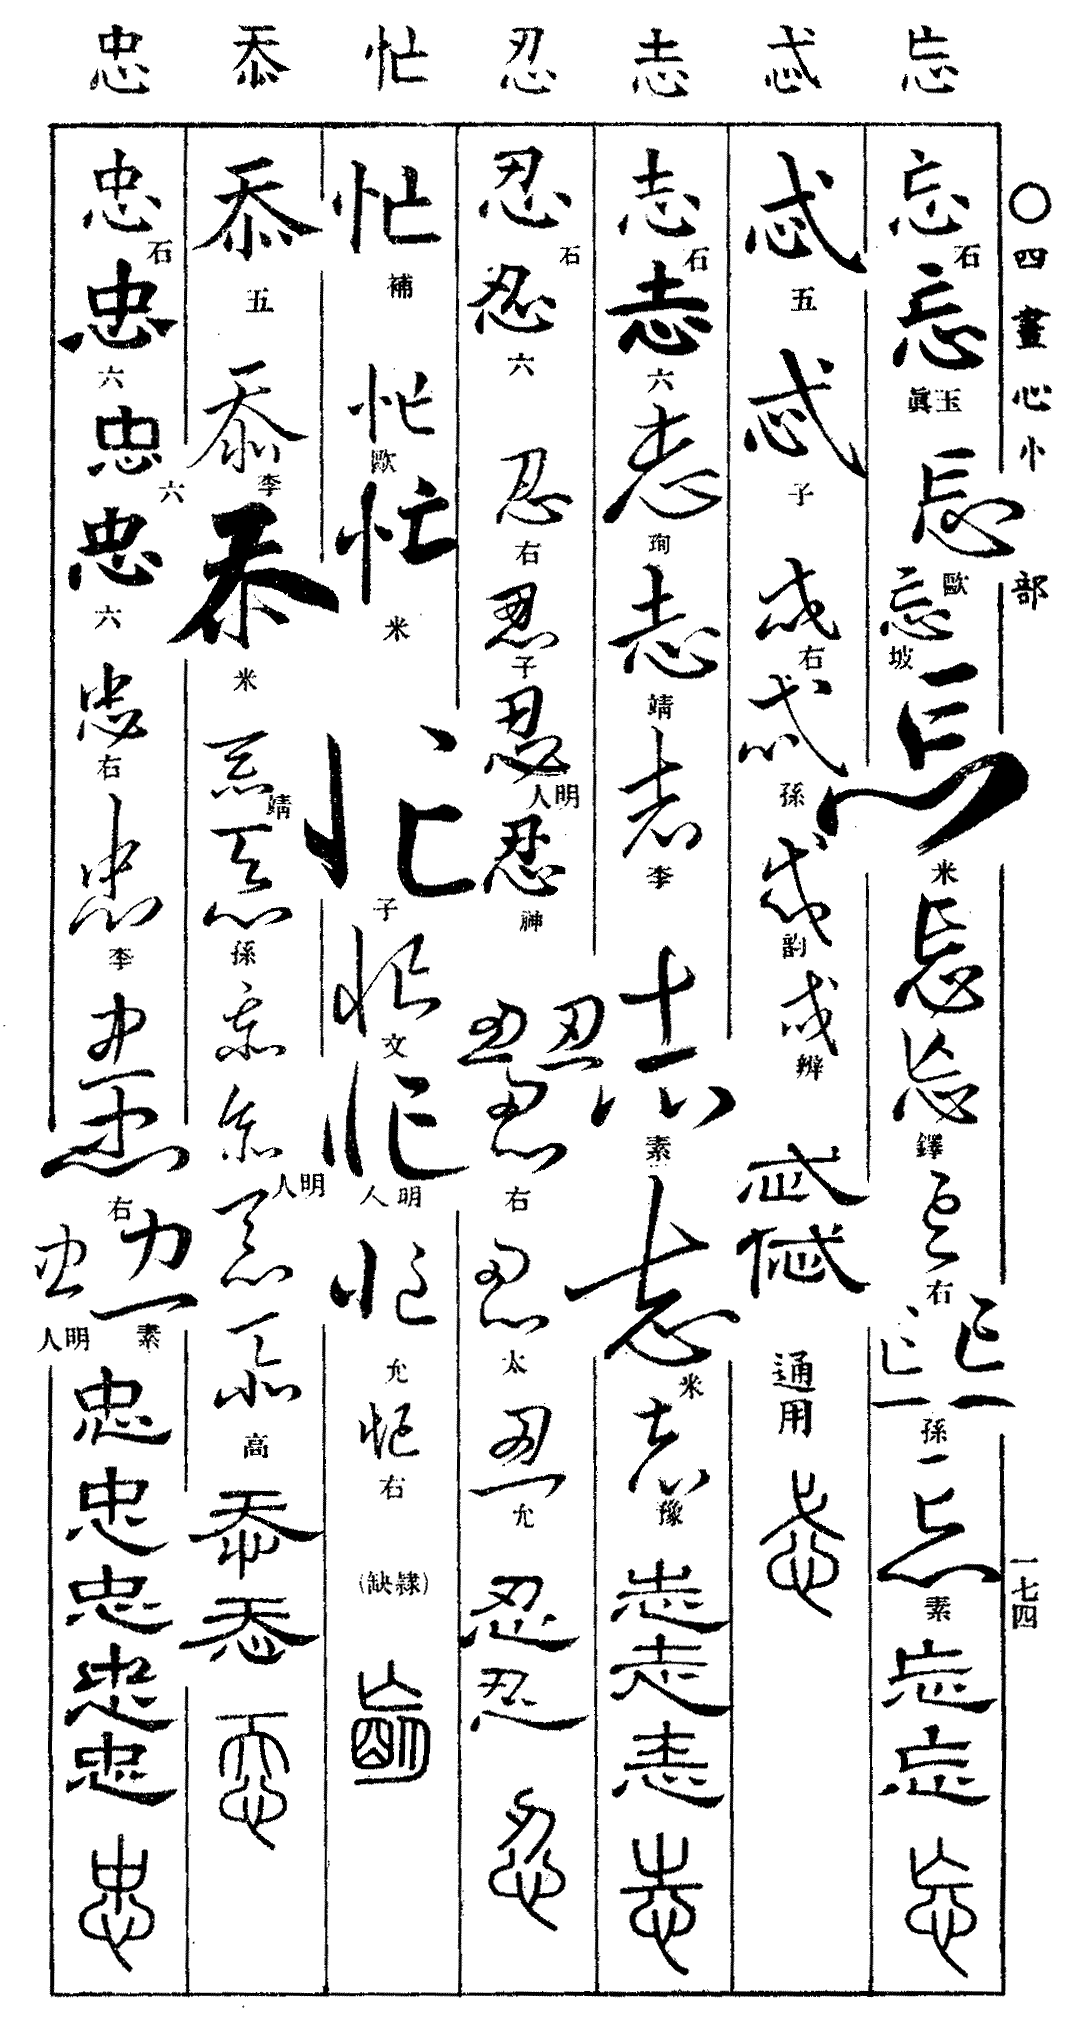 ○四畫 心小部 一七四
忘 忒 志 忍 忙 忝 忠
忘 石 忘 玉眞 忘 歐 忘 坡 忘 米 忘 忘 鐸 忘 右 忘 忘 孫 忘 素 忘 忘 忘
忒 五 忒 子 忒 右 忒 孫 忒 韵 忒 辨 忒 通用 忒
志 石 志 六 志 珣 志 靖 志 李 志 素 志 米 志 豫 志 志 志 志
忍 石 忍 六 忍 右 忍 子 忍 明人 忍 神 忍 忍 忍 右 忍 太 忍 允 忍 忍 忍
忙 補 忙 歐 忙 米 忙 子 忙 文 忙 明人 忙 允 忙 右 (隷缺)
忝 五 忝 李 忝 米 忝 靖 忝 孫 忝 忝 明人 忝 忝 高 忝 忝 忝
忠 石 忠 六 忠 六 忠 六 忠 右 忠 李 忠 忠 右 忠 素 忠 明人 忠 忠 忠 忠 忠